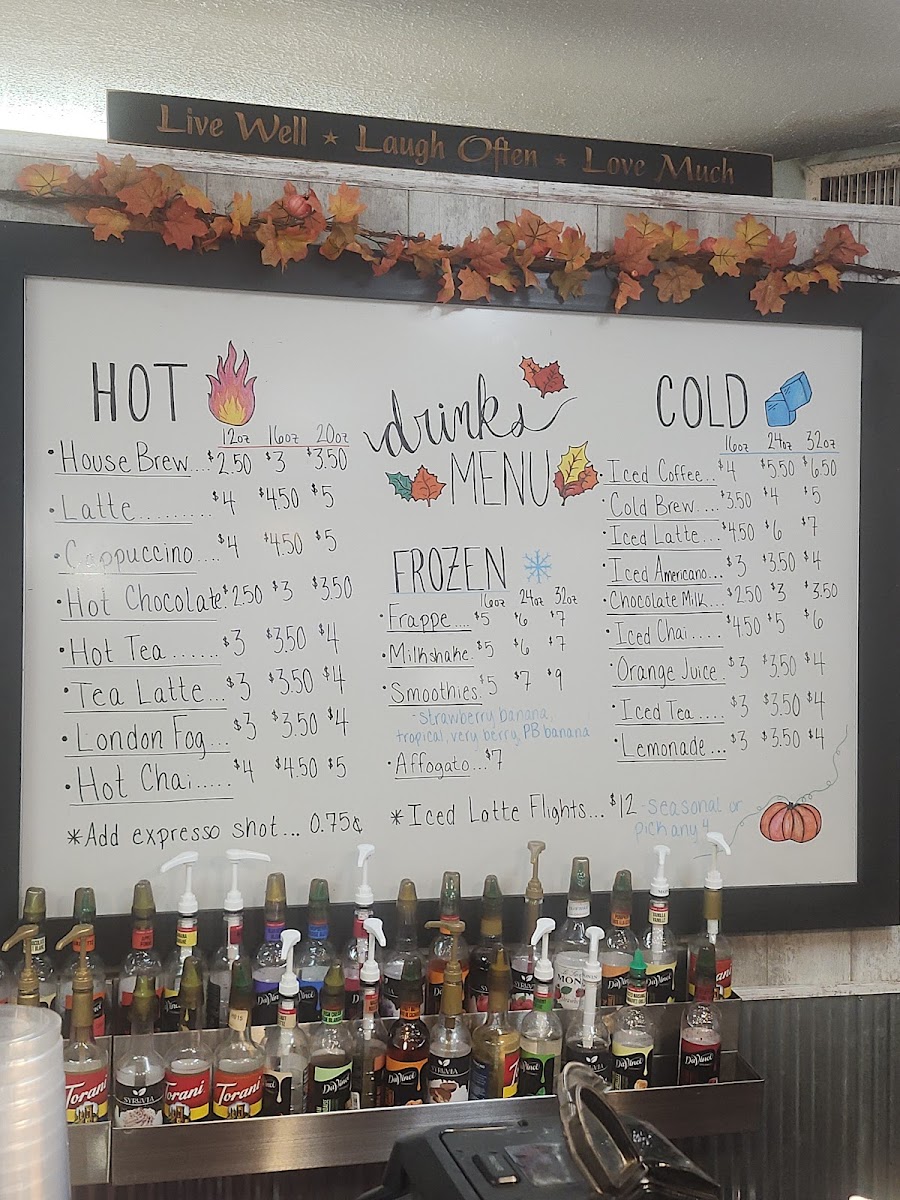 Live Well ★ Laugh Often ★ Love Much
HOT
12oz 16oz 20oz
• House Brew... $2.50 $3 $3.50
• Latte.......... $4 $4.50 $5
• Cappuccino.... $4 $4.50 $5
• Hot Chocolate. $2.50 $3 $3.50
• Hot Tea....... $3 $3.50 $4
• Tea Latte... $3 $3.50 $4
• London Fog... $3 $3.50 $4
• Hot Chai...... $4 $4.50 $5
*Add expresso shot... 0.75¢
drinks
MENU
FROZEN
16oz 24oz 32oz
• Frappe.... $5 $6 $7
• Milkshake. $5 $6 $7
• Smoothies. $5 $7 $9
- strawberry banana,
tropical, very berry, PB banana
• Affogato... $7
*Iced Latte Flights... $12 - seasonal or
pick any 4
COLD
16oz 24oz 32oz
• Iced Coffee.. $4 $5.50 $6.50
• Cold Brew.... $3.50 $4 $5
• Iced Latte.... $4.50 $6 $7
• Iced Americano... $3 $3.50 $4
• Chocolate Milk.... $2.50 $3 $3.50
• Iced Chai..... $4.50 $5 $6
• Orange Juice. $3 $3.50 $4
• Iced Tea..... $3 $3.50 $4
• Lemonade... $3 $3.50 $4
DaVinci
DaVinci
MONIN
DaVinci
Torani
Torani
SYRUVIA
Torani
Torani
DaVinci
DaVinci
SYRUVIA
DaVinci
SYRUVIA
DaVinci
DaVinci